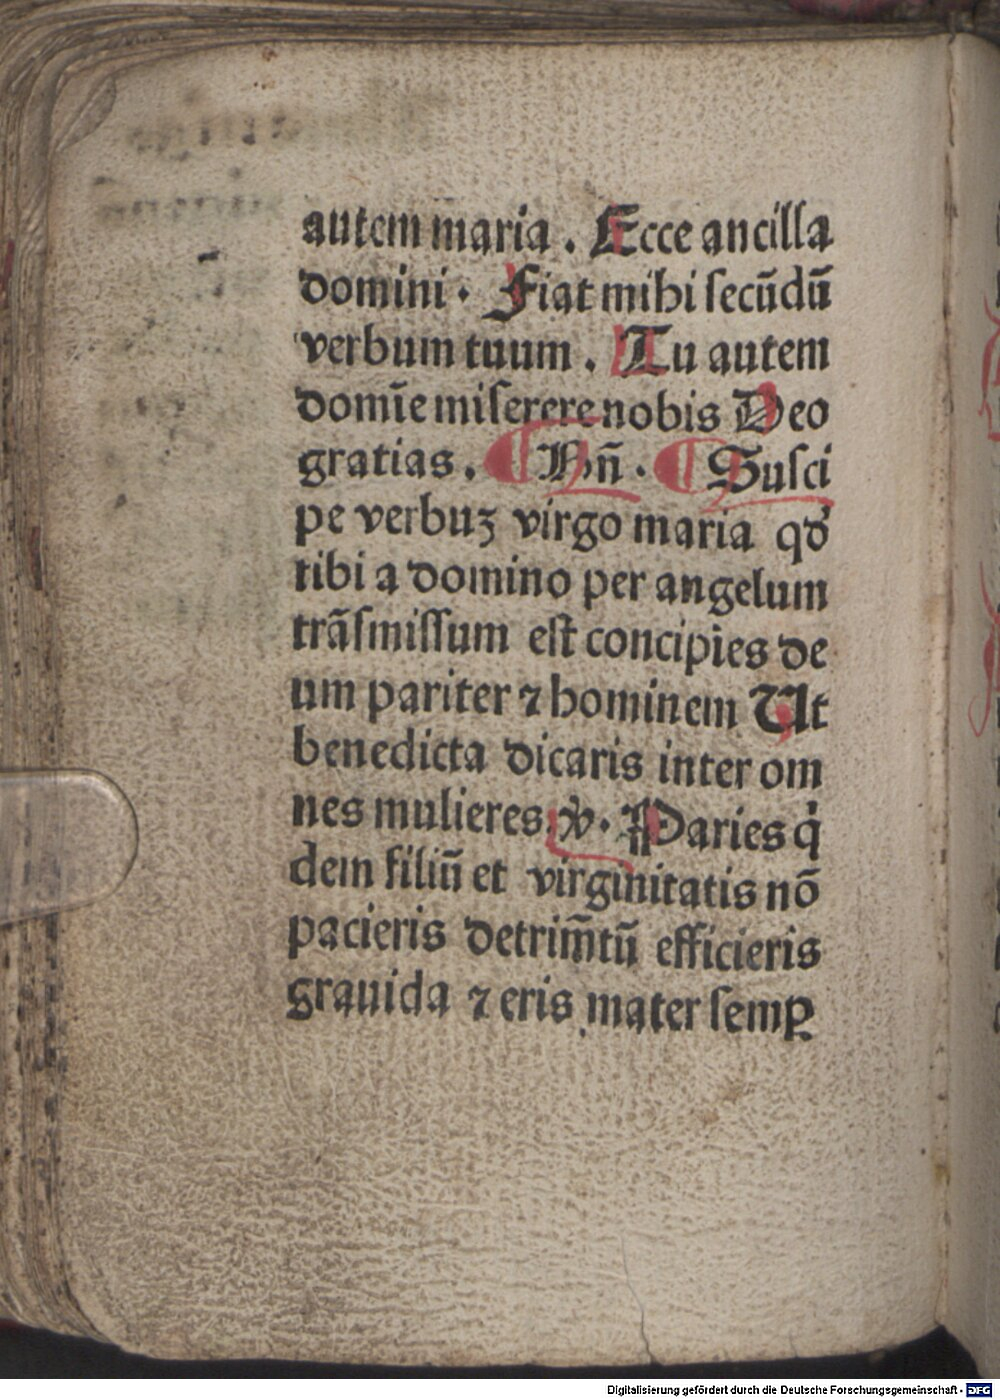 autem maria . Ecce ancilla
domini . Fiat mihi ſecūdū
verbum tuum . Tu autem
domīe miſerere nobis Deo
gratias . Rñ . Suſci
pe verbuʒ virgo maria qđ
tibi a domino per angelum
trāſmiſſum eſt concipies de
um pariter ⁊ hominem Ut
benedicta dicaris inter om
nes mulieres. ꝟ. Paries q̇
dem filiū et virginitatis nō
pacieris detrim̄tū efficieris
grauida ⁊ eris mater ſemꝑ
Digitalisierung gefördert durch die Deutsche Forschungsgemeinschaft - DFG